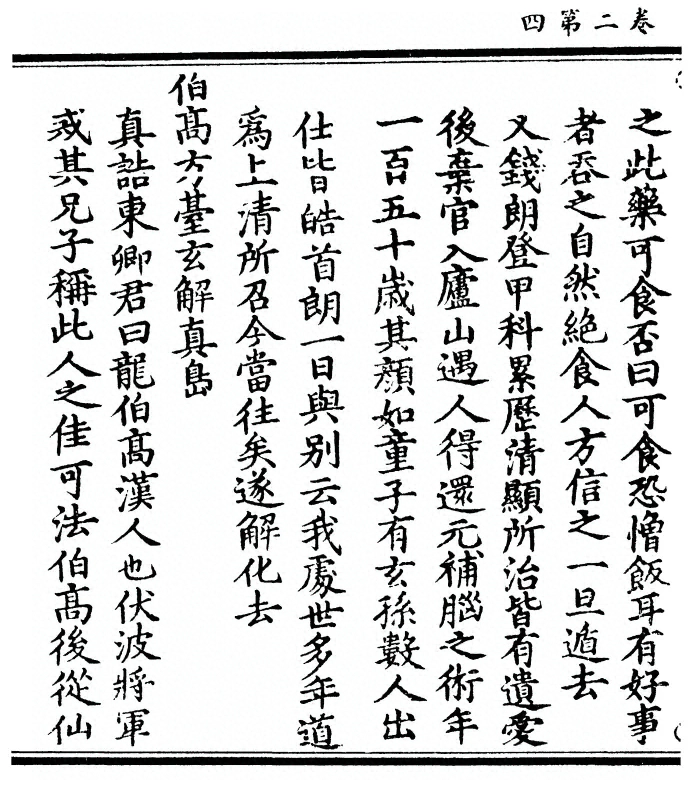 卷二第四
之此藥可食否曰可食恐憎飯耳有好事
者吞之自然絶食人方信之一旦遁去
又錢朗登甲科累歷清顯所治皆有遺愛
後棄官入廬山遇人得還元補腦之術年
一百五十歲其顔如童子有玄孫數人出
仕皆皓首朗一日與别云我處世多年道
爲上清所召今當往矣遂解化去
伯髙方臺玄解真島
真誥東卿君曰龍伯髙漢人也伏波將軍
戒其兄子稱此人之佳可法伯髙後從仙